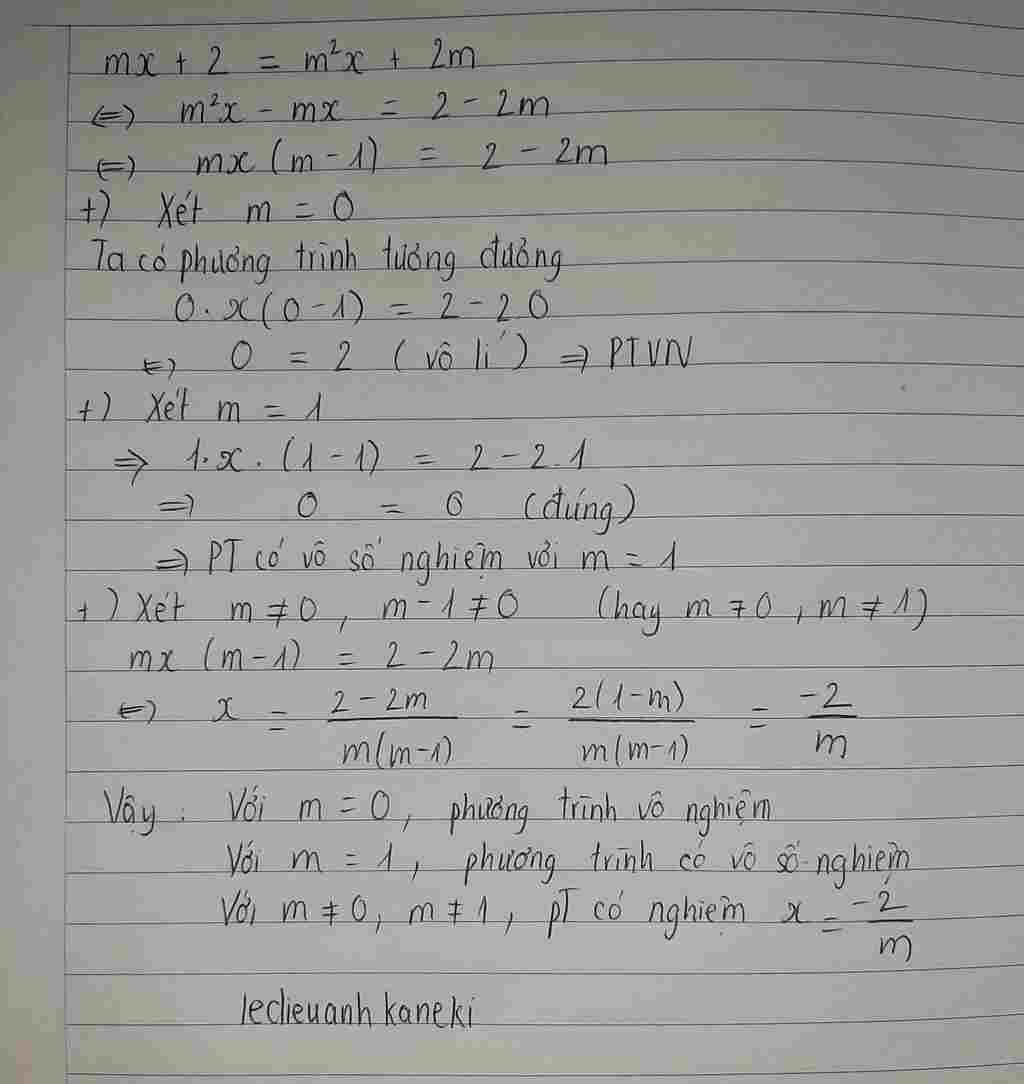 mx + 2 = m²x + 2m
⇔ m²x - mx = 2 - 2m
⇔ mx (m - 1) = 2 - 2m
+) Xét m = 0
Ta có phương trình tương đương
0.x(0 - 1) = 2 - 2.0
⇔ 0 = 2 (vô lí) ⇒ PTVN
+) Xét m = 1
⇒ 1.x.(1 - 1) = 2 - 2.1
⇒ 0 = 0 (đúng)
⇒ PT có vô số nghiệm với m = 1
+) Xét m ≠ 0, m - 1 ≠ 0 (hay m ≠ 0, m ≠ 1)
mx (m - 1) = 2 - 2m
⇔ x = (2 - 2m)/(m(m-1)) = (2(1-m))/(m(m-1)) = -2/m
Vậy : Với m = 0, phương trình vô nghiệm
Với m = 1, phương trình có vô số nghiệm
Với m ≠ 0, m ≠ 1, PT có nghiệm x = -2/m
ledieuanh kaneki